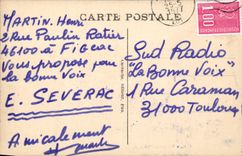 CARTE POSTALE
MARTIN. Henri
2 Rue Paulin Ratier
46100 à Figeac
Vous propose pour
la bonne Voix
E. SEVERAC
Amicalement
1.00
Sud Radio
"La Bonne Voix"
1 Rue Caraman
31000 Toulouse